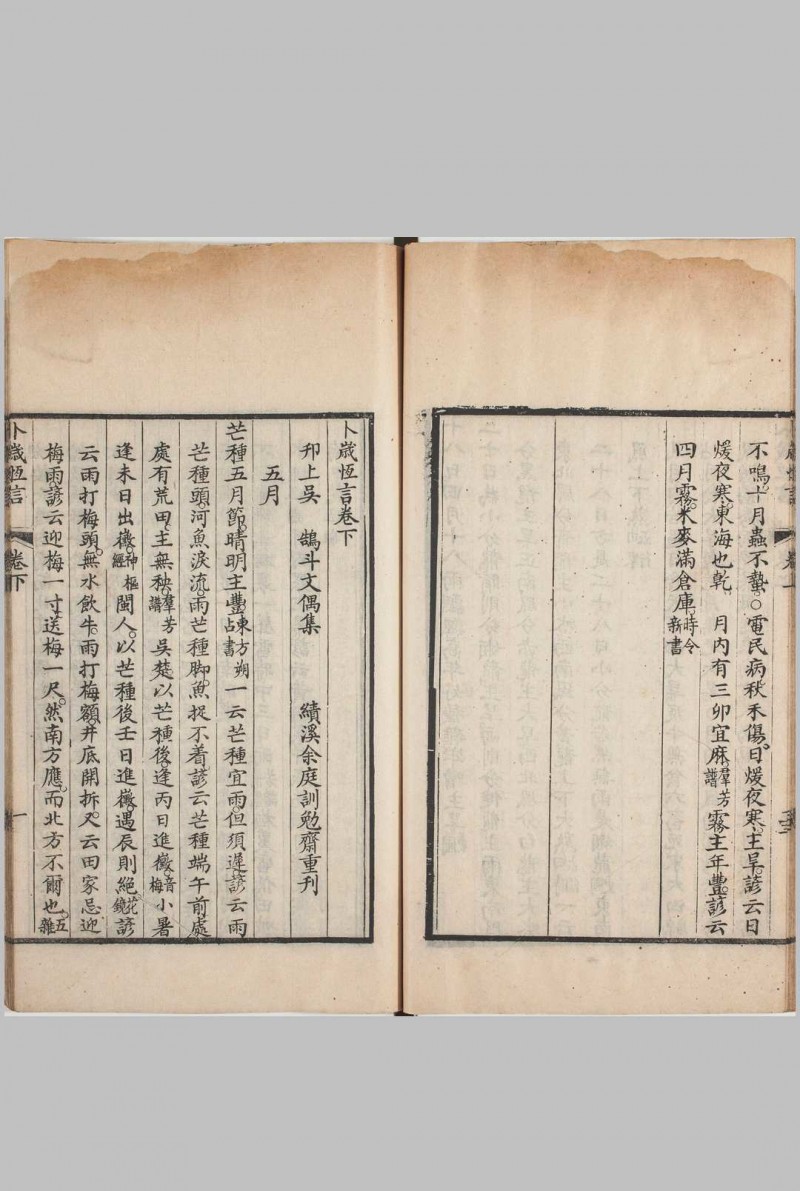 不鳴十月蟲不蟄○電民病秋禾傷日煖夜寒主旱諺云日
煖夜寒東海也乾　月內有三卯宜麻羣芳譜霧主年豐諺云
四月霧米麥滿倉庫時令新書
卜歲恆言卷下
邗上吳　鵠斗文偶集　績溪余庭訓勉齋重刊
五月
芒種五月節晴明主豐東方朔占書一云芒種宜雨但須遲諺云雨
芒種頭河魚淚流雨芒種脚魚捉不着諺云芒種端午前處
處有荒田主無秧羣芳譜吳楚以芒種後逢丙日進黴音梅小暑
逢未日出黴神樞經閩人以芒種後壬日進黴遇辰則絕花鏡諺
云雨打梅頭無水飲牛雨打梅額井底開拆又云田家忌迎
梅雨諺云迎梅一寸送梅一尺然南方應而北方不爾也五雜
卜歲恆言
卷下
一